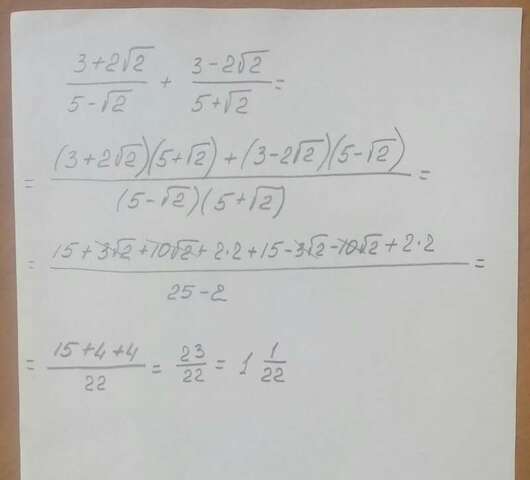 (3+2√2)/(5-√2) + (3-2√2)/(5+√2) =
= ((3+2√2)(5+√2)+(3-2√2)(5-√2))/((5-√2)(5+√2)) =
= (15+3√2+10√2+2·2+15-3√2-10√2+2·2)/(25-2) =
= (15+4+4)/22 = 23/22 = 1 1/22